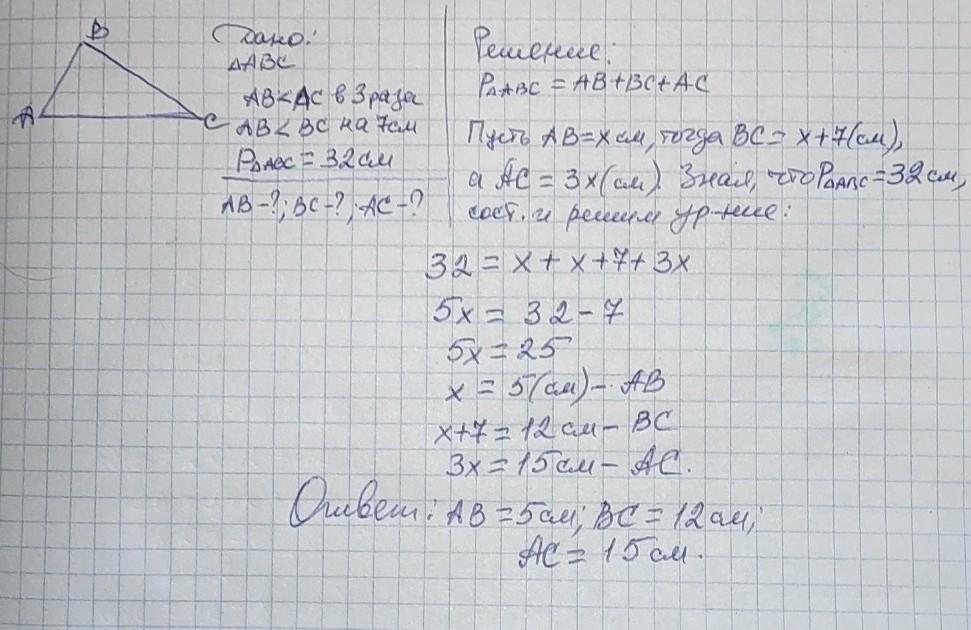 B
A
C
Дано:
△ABC
AB<AC в 3 раза
AB<BC на 7см
P△ABC = 32см
AB-?; BC-?; AC-?
Решение:
P△ABC = AB+BC+AC
Пусть AB=x см, тогда BC= x+7(см),
а AC = 3x(см). Зная, что P△ABC=32см,
сост. и решим ур-ние:
32 = x + x+7+ 3x
5x = 32-7
5x = 25
x = 5(см)- AB
x+7 = 12см- BC
3x = 15см- AC.
Ответ: AB = 5см; BC = 12см;
AC = 15см.